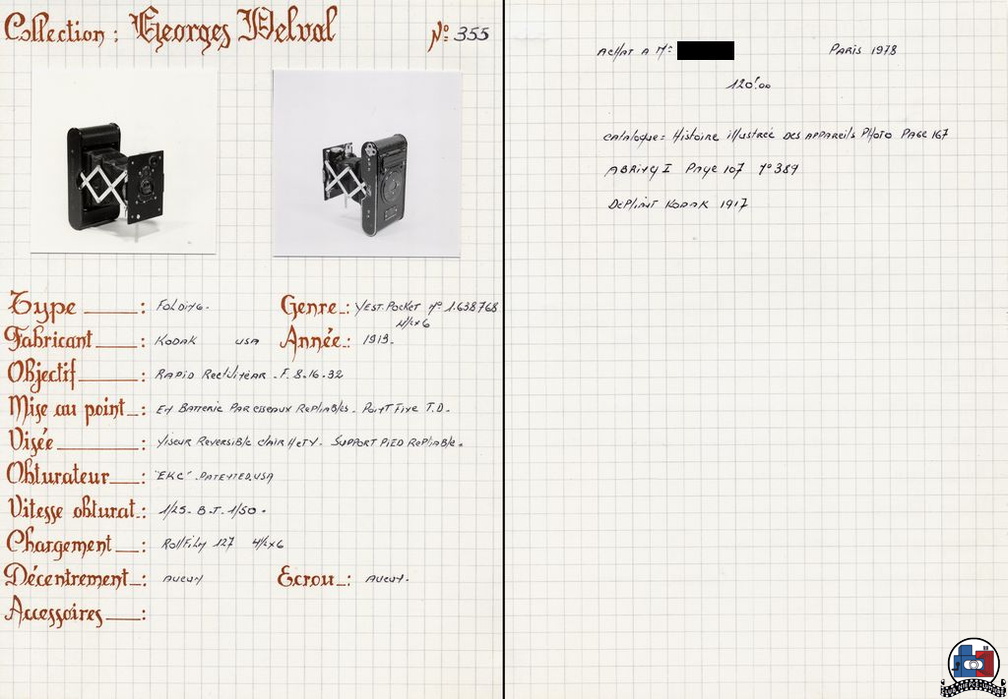 Collection : Georges Delval N° 355
Type : Folding.
Genre : Vest. Pocket N° 1.638768
4½x6
Fabricant : Kodak USA
Année : 1913.
Objectif : Rapid Rectilinéar . F. 8.16.32
Mise au point : En Batterie Par ciseaux Repliables. Point Fixe T.D.
Visée : Viseur Reversible clair Nety. Support Pied Repliable.
Obturateur : "EKC". Patented.USA
Vitesse obturat. : 1/25. B.T. 1/50.
Chargement : RollFilm 127 4½x6
Décentrement : Aucun
Ecrou : Aucun.
Accessoires :
Achat a Mr:
Paris 1978
120F.00
catalogue: Histoire illustrée des appareils Photo Page 167
Abring I Page 107 N°389
Depliant Kodak 1917